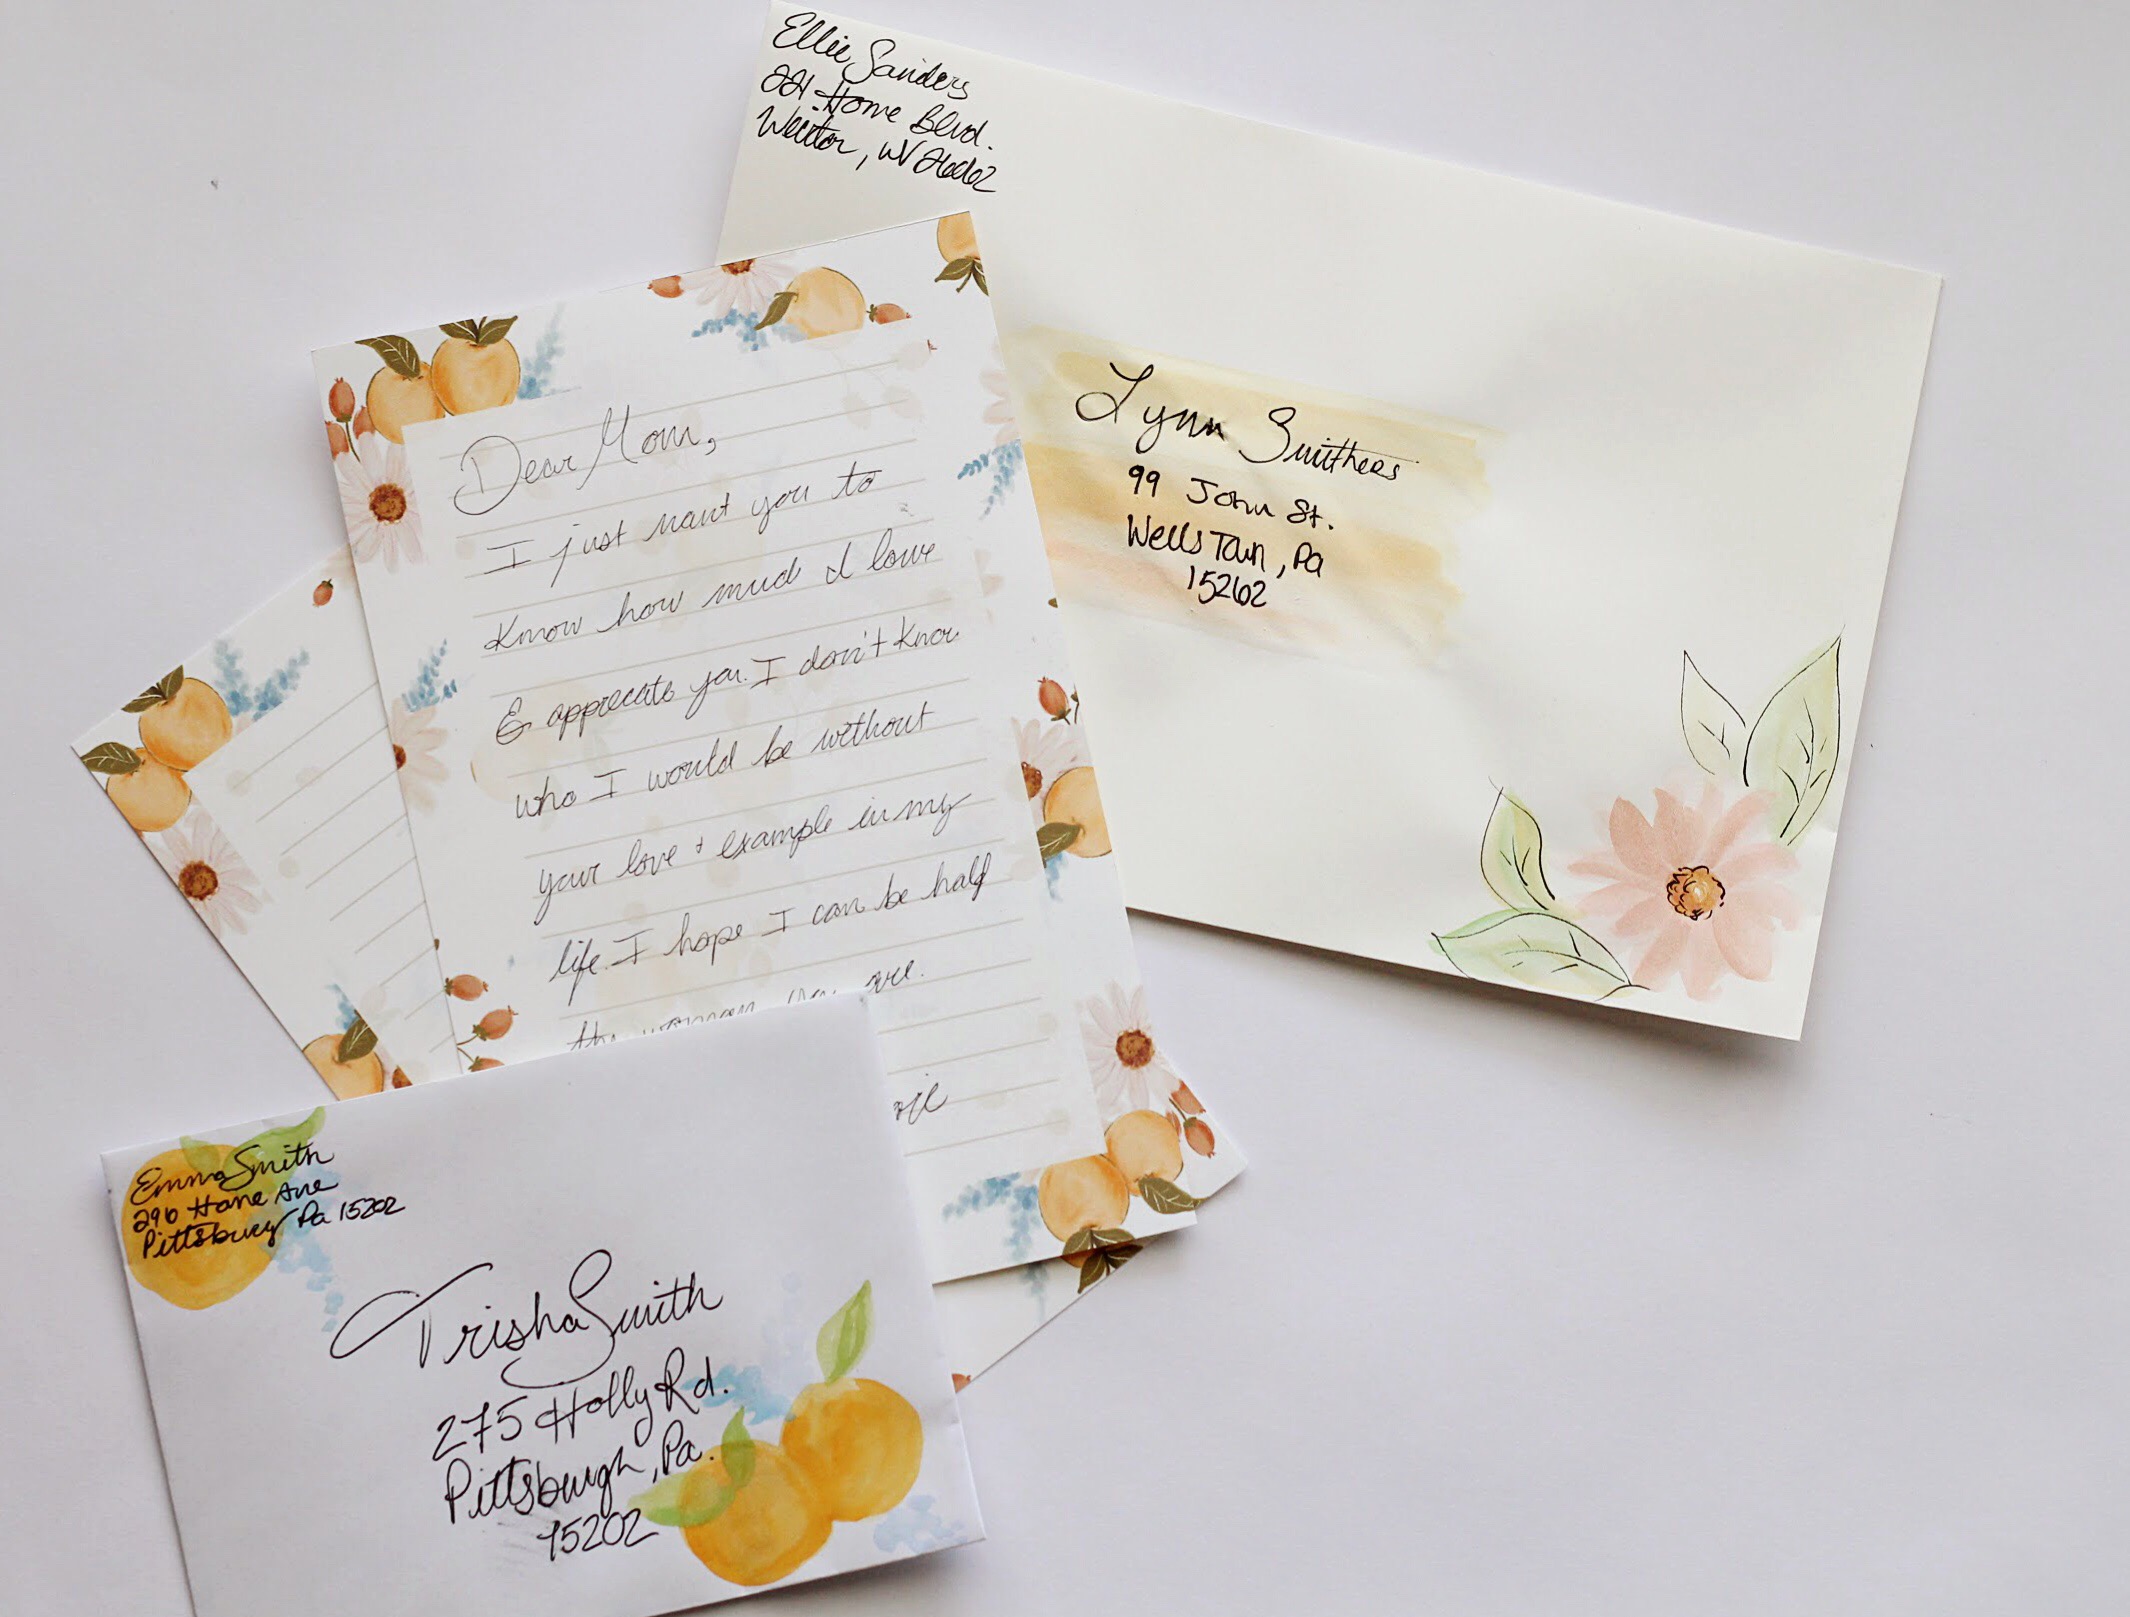 Ellie Sanders
221 Home Blvd.
Weirton, WV 26062
Lynn Smithers
99 John St.
Wellstown, Pa
15262
Dear Mom,
I just want you to
know how much I love
& apprecate you. I don't know
who I would be without
your love + example in my
life. I hope I can be half
the woman you are.
Emma Smith
296 Home Ave
Pittsburgh Pa 15202
Trisha Smith
275 Holly Rd.
Pittsburgh, Pa.
15202